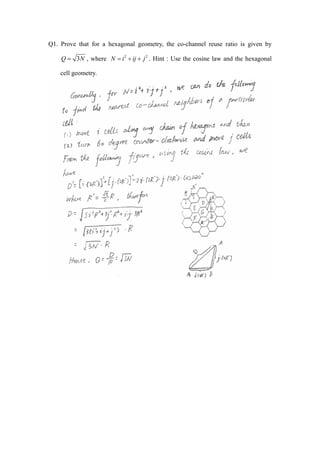 Q1. Prove that for a hexagonal geometry, the co-channel reuse ratio is given by
Q = √3N , where N = i² + ij + j² . Hint : Use the cosine law and the hexagonal
cell geometry.
Generally, for N = i²+ij+j², we can do the following
to find the nearest co-channel neighbors of a particular
cell:
(1) move i cells along any chain of hexagons and then
(2) turn 60 degree counter-clockwise and move j cells
From the following figure, using the cosine law, we
have
where R' = √3/2 R, therefore
D = √(3i²R²+3j²R²+ij·3R²)
= √(3(i²+ij+j²)) · R
= √3N · R
Hence, Q = D/R = √3N